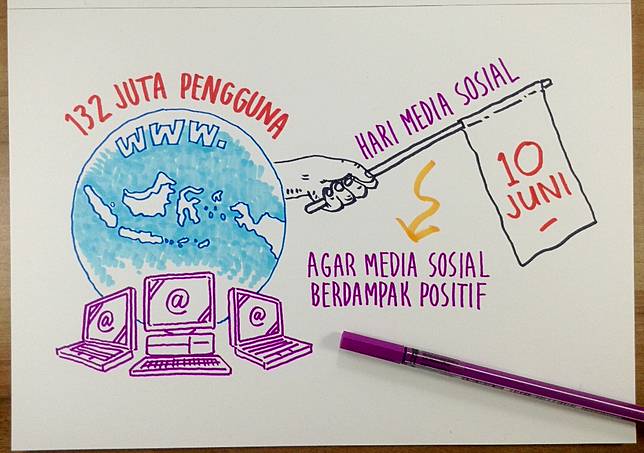 132 JUTA PENGGUNA
WWW.
HARI MEDIA SOSIAL
10
JUNI
AGAR MEDIA SOSIAL
BERDAMPAK POSITIF
@
@
@